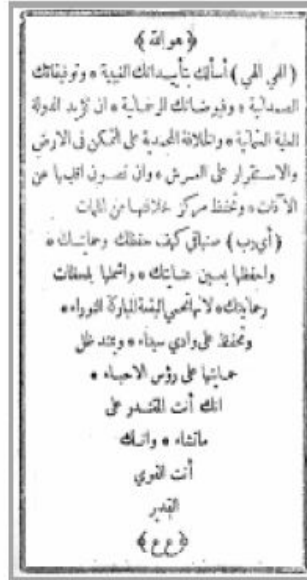 ﴿ هو الله ﴾
( الهي الهي ) أسألك بتأييداتك الغيبية * وتوفيقاتك
الصمدانية * وفيوضاتك الرحمانية * ان تؤيد الدولة
العلية العثمانية * والخلافة المحمدية على التمكن فى الارض
والاستقرار على العرش * وان تصون اقليمها عن
الآفات * وتحفظ مركز خلافتها من الملمات
( أي رب ) صنها في كهف حفظك وحمايتك *
واحفظها بعين عنايتك * واشملها بلحظات
رحمانيتك * لانها تحمي البقعة المباركة النوراء *
وتحفظ على وادي سيناء * ويمتد ظل
حمايتها على رؤس الاحباء *
انك أنت المقتدر على
ماتشاء * وانك
أنت القوي
القدير
﴿ ع ع ﴾